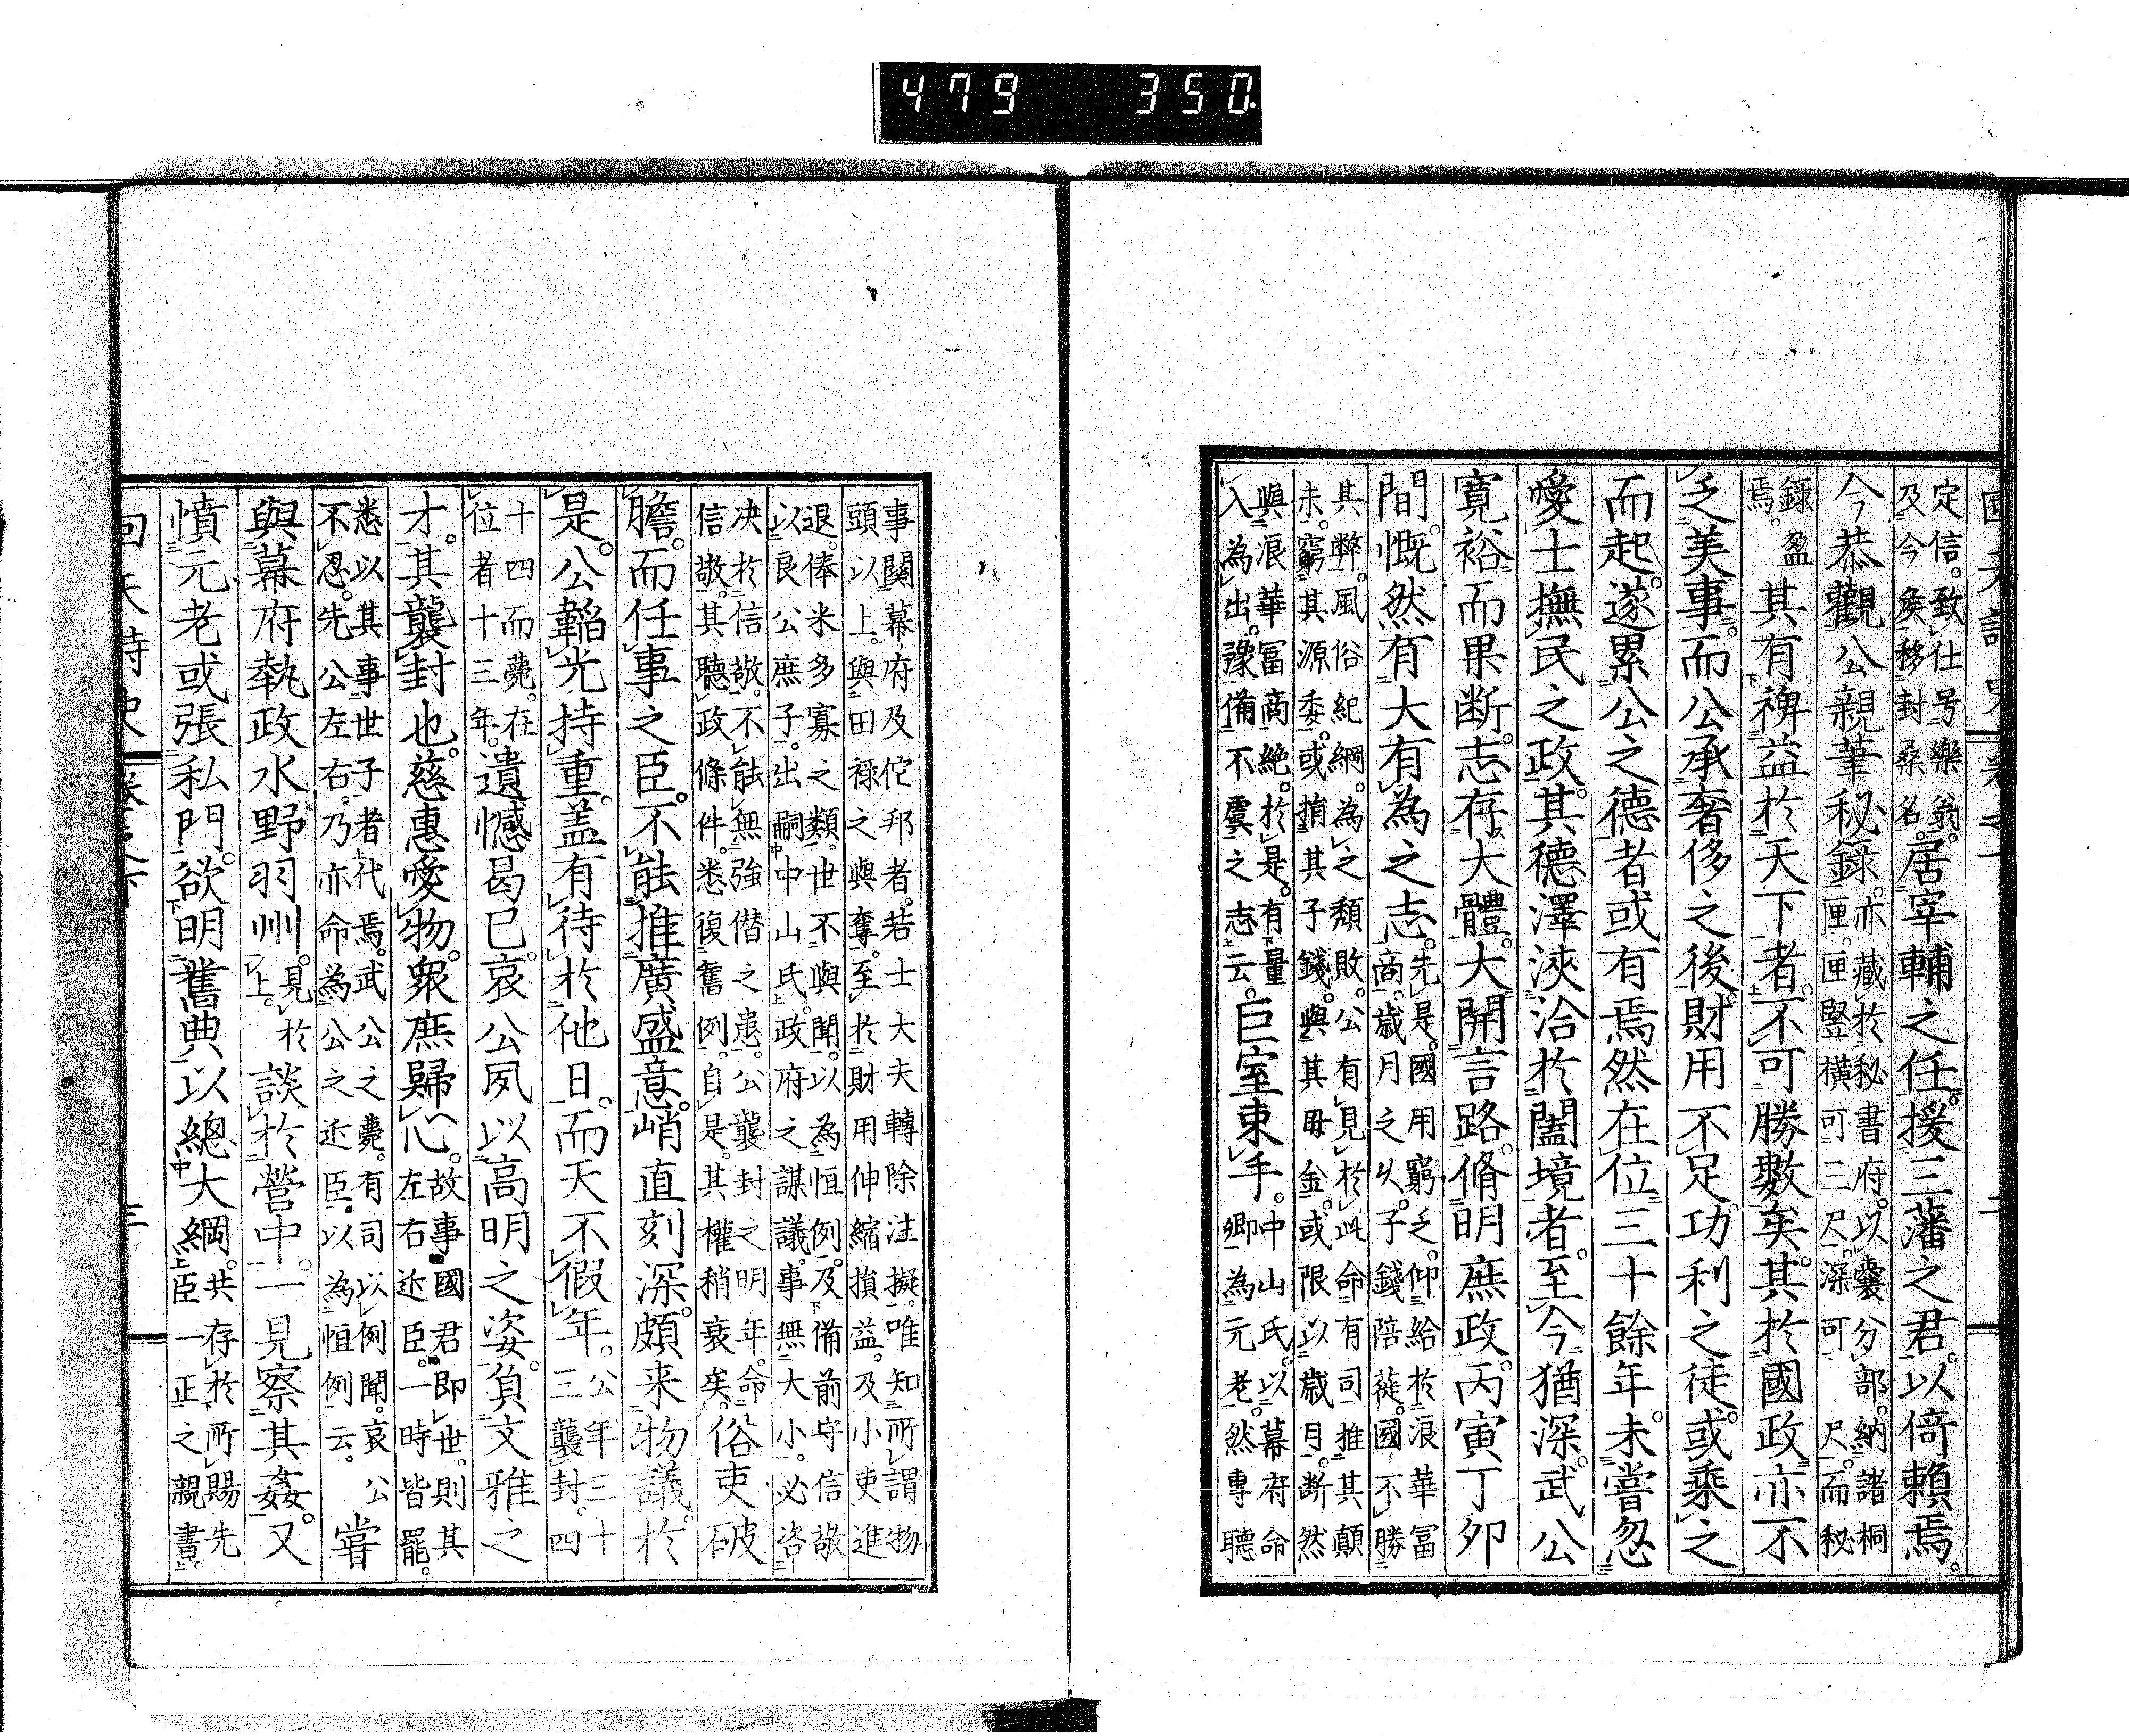 479 350
定信。致仕号樂翁。
及今矦移封桑名。居宰輔之任。援三藩之君。以倚賴焉。
今恭觀公親筆秘錄。亦藏於秘書府。以囊分部。納諸桐
匣。匣竪橫可三尺。深可尺。而秘
錄盈
焉。其有裨益於天下者。不可勝數矣。其於國政。亦不
乏美事。而公承奢侈之後。財用不足。功利之徒。或乘之
而起。遂累公之德者或有焉。然在位三十餘年。未嘗忽
愛士撫民之政。其德澤浹洽於闔境者。至今猶深。武公
寬裕而果断。志存大體。大開言路。脩明庶政。丙寅丁卯
間。慨然有大有為之志。先是。國用窮乏。仰給於浪華冨
商。歲月之久。子錢陪蓰。國不勝
其弊。風俗紀綱。為之頽敗。公有見於此。命有司推其顛
末。窮其源委。或捐其子錢。與其毋金。或限以歲月。断然
與浪華冨商絶。於是。有量
入為出。豫備不虞之志云。巨室束手。中山氏。以幕府命
卿為元老。然專聽
事關幕府及佗邦者。若士大夫轉除注擬。唯知所謂物
頭以上。與田禄之與奪。至於財用伸縮損益。及小吏進
退。俸米多寡之類。世不與聞。以為恒例。及備前守信敬
以良公庶子。出嗣中山氏。政府之謀議。事無大小。必咨
决於信敬。不能無強僣之患。公襲封之明年。命
信敬。其聽政條件。悉復舊例。自是。其權稍衰矣。俗吏破
膽。而任事之臣。不能推廣盛意。峭直刻深。頗来物議。於
是。公韜光持重。盖有待於他日。而天不假年。公年三十
三襲封。四
十四而薨。在
位者十三年。遺憾曷已。哀公夙以高明之姿。負文雅之
才。其襲封也。慈惠愛物。衆庶歸心。故事國君即世。則其
左右近臣。一時皆罷。
悉以其事世子者代焉。武公之薨。有司以例聞。哀公
不忍。先公左右。乃亦命為公之近臣。以為恒例云。嘗
與幕府執政水野羽州。見於
上。談於營中。一見察其姦。又
憤元老或張私門。欲明舊典以總大綱。共存於所賜先
臣一正之親書。